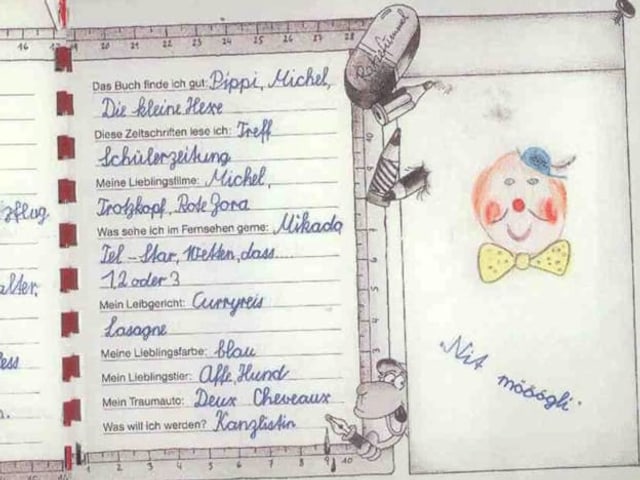 Das Buch finde ich gut: Pippi, Michel,
Die kleine Hexe
Diese Zeitschriften lese ich: Treff
Schülerzeitung
Meine Lieblingsfilme: Michel,
Trotzkopf, Rote Zora
Was sehe ich im Fernsehen gerne: Mikado
Tel-Star, Wetten, dass....
1,2 oder 3
Mein Leibgericht: Curryreis
Lasagne
Meine Lieblingsfarbe: blau
Mein Lieblingstier: Affe, Hund
Mein Traumauto: Deux Cheveaux
Was will ich werden? Kanzlistin
"Nit möögli"